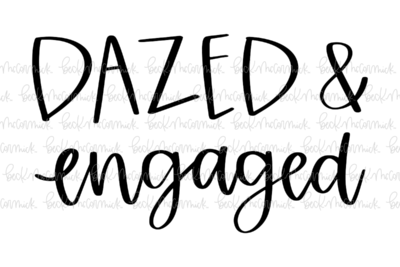 DAZED &
engaged